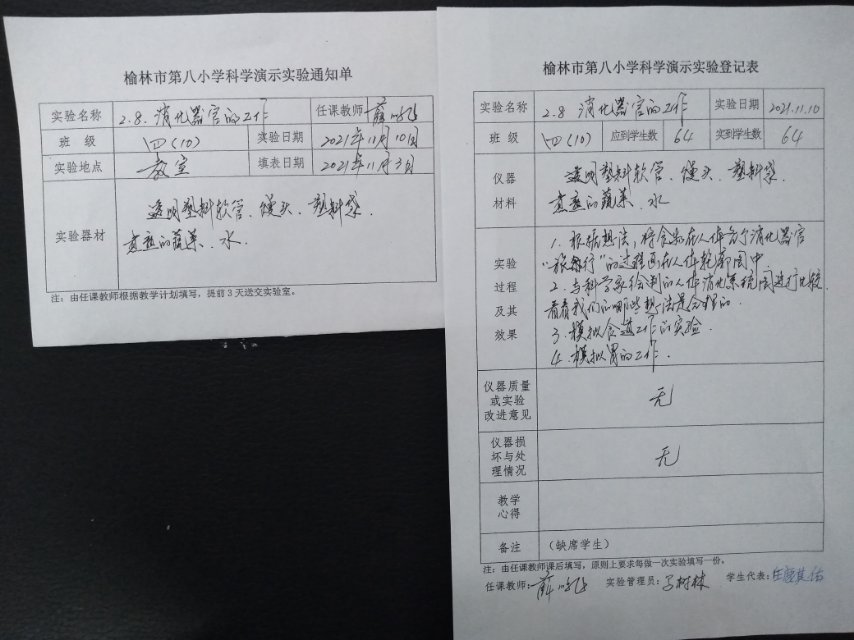 榆林市第八小学科学演示实验通知单
实验名称 2.8. 消化器官的工作 任课教师 薛
班 级 四(10) 实验日期 2021年11月10日
实验地点 教室 填表日期 2021年11月3日
实验器材 透明塑料软管、馒头、塑料袋、
煮熟的蔬菜、水.
注：由任课教师根据教学计划填写，提前3天送交实验室。
榆林市第八小学科学演示实验登记表
实验名称 2.8 消化器官的工作 实验日期 2021.11.10
班 级 四(10) 应到学生数 64 实到学生数 64
仪器材料 透明塑料软管、馒头、塑料袋、
煮熟的蔬菜、水
实验过程及其效果
1. 根据想法，将食物在人体各个消化器官
“旅行”的过程画在人体轮廓图中
2. 与科学家绘制的人体消化系统图进行比较，
看看我们的哪些想法是合理的.
3. 模拟食道工作的实验.
4. 模拟胃的工作.
仪器质量或实验改进意见 无
仪器损坏与处理情况 无
教学心得
备注 （缺席学生）
注：由任课教师课后填写，原则上要求每做一次实验填写一份。
任课教师：薛 实验管理员： 学生代表：